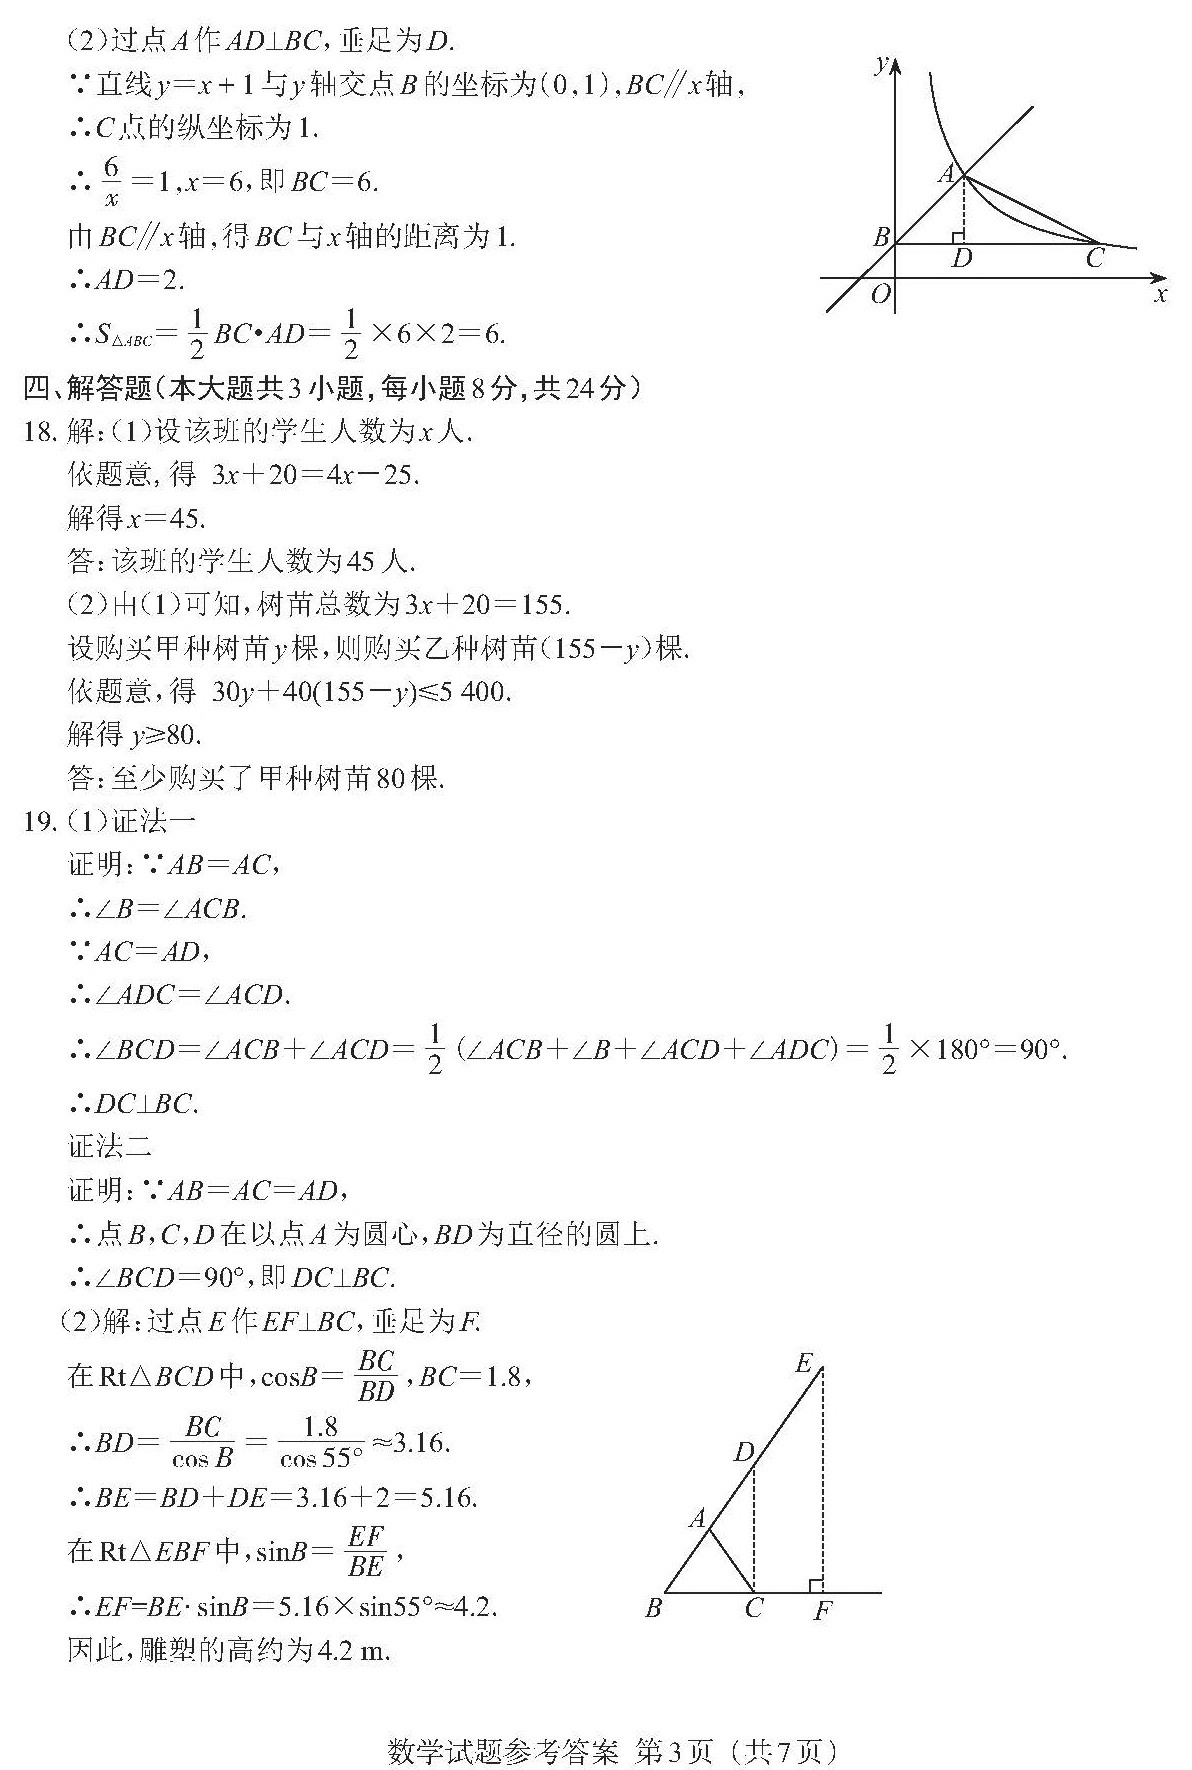 (2)过点A作AD⊥BC,垂足为D.
∵直线y=x+1与y轴交点B的坐标为(0,1),BC∥x轴,
∴C点的纵坐标为1.
∴6/x=1,x=6,即BC=6.
由BC∥x轴,得BC与x轴的距离为1.
∴AD=2.
∴S△ABC=1/2BC•AD=1/2×6×2=6.
y
A
B
D
C
O
x
四、解答题(本大题共3小题,每小题8分,共24分)
18.解:(1)设该班的学生人数为x人.
依题意,得 3x+20=4x-25.
解得x=45.
答:该班的学生人数为45人.
(2)由(1)可知,树苗总数为3x+20=155.
设购买甲种树苗y棵,则购买乙种树苗(155-y)棵.
依题意,得 30y+40(155-y)≤5 400.
解得 y≥80.
答:至少购买了甲种树苗80棵.
19.(1)证法一
证明:∵AB=AC,
∴∠B=∠ACB.
∵AC=AD,
∴∠ADC=∠ACD.
∴∠BCD=∠ACB+∠ACD=1/2(∠ACB+∠B+∠ACD+∠ADC)=1/2×180°=90°.
∴DC⊥BC.
证法二
证明:∵AB=AC=AD,
∴点B,C,D在以点A为圆心,BD为直径的圆上.
∴∠BCD=90°,即DC⊥BC.
(2)解:过点E作EF⊥BC,垂足为F.
在Rt△BCD中,cosB=BC/BD,BC=1.8,
∴BD=BC/cos B=1.8/cos 55°≈3.16.
∴BE=BD+DE=3.16+2=5.16.
在Rt△EBF中,sinB=EF/BE,
∴EF=BE·sinB=5.16×sin55°≈4.2.
因此,雕塑的高约为4.2 m.
E
D
A
B
C
F
数学试题参考答案 第3页(共7页)